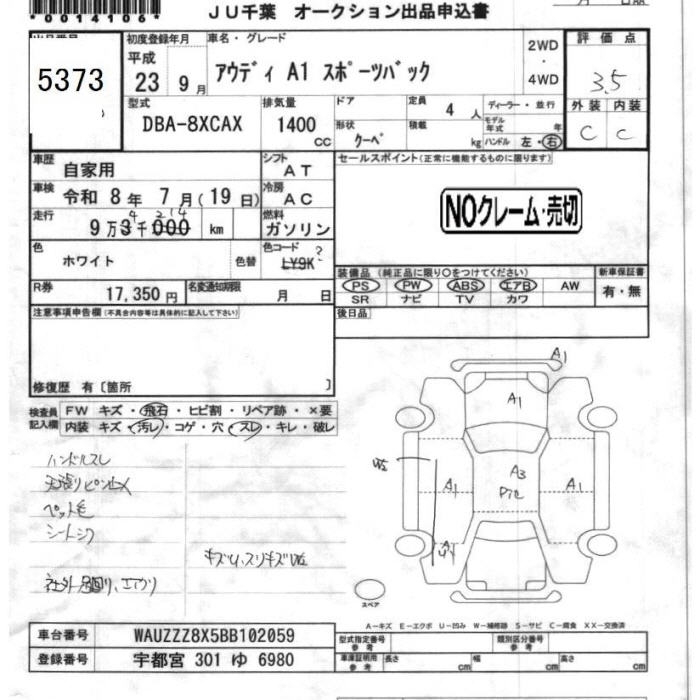 *0014106*
JU千葉 オークション出品申込書
5373
初度登録年月
平成
23 9月
車名・グレード
アウディ A1 スポーツバック
2WD
・
4WD
評価点
3.5
型式
DBA-8XCAX
排気量
1400
cc
ドア
形状
クーペ
定員 4 人
積載 kg
ディーラー・並行
モデル年式 年
ハンドル 左・右
外装 内装
C C
車歴
自家用
シフト
AT
セールスポイント(正常に機能するものに限ります)
車検
令和 8年 7月(19日)
冷房
AC
NOクレーム・売切
走行
9万3千000 km
4 214
燃料
ガソリン
色
ホワイト
色替
色コード
LY9K ?
装備品 (純正品に限り○をつけてください)
新車保証書
PS PW ABS エアB AW
SR ナビ TV カワ
有・無
R券
17,350円
名変通知期限
月 日
後日品
注意事項申告欄(不具合内容等は具体的に記入して下さい)
修復歴 有〔箇所 〕
検査員記入欄
FW キズ・飛石・ヒビ割・リペア跡・×要
内装 キズ・汚レ・コゲ・穴・スレ・キレ・破レ
ハンドルスレ
天張りピン止メ
ペット毛
シートシワ
社外足回り、エアクリ
A1
A1
A3
A1
A1
スペア
A-キズ E-エクボ U-凹み W-補修跡 S-サビ C-腐食 XX-交換済
車台番号
WAUZZZ8X5BB102059
型式指定番号
参考
類別区分番号
参考
登録番号
宇都宮 301 ゆ 6980
車庫証明用
参考
長さ cm
幅 cm
高さ cm